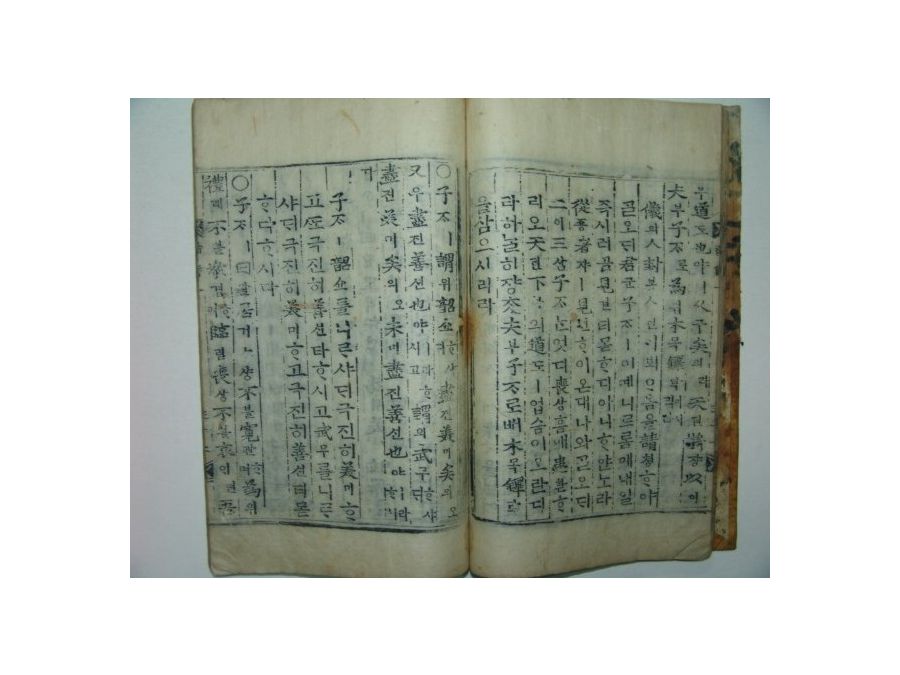 무道도也야ㅣ久구矣의라天텬將쟝以이
夫부子ᄌᆞ로爲위木목鐸탁이시리라
儀의人封봉人인이뵈ᄋᆞ옴을請쳥ᄒᆞ야
ᄀᆞᆯ오ᄃᆡ君군子ᄌᆞㅣ이예니르롬애내일
즉시러곰見견티몯ᄒᆞ디아니ᄒᆞ얀노라
從죵者쟈ㅣ見현ᄒᆞ이온대나와ᄀᆞᆯ오ᄃᆡ
二이三삼子ᄌᆞᄂᆞᆫ엇디喪상홈애患환ᄒᆞ
리오天텬下하의道도ㅣ업슴이오란디
라하ᄂᆞᆯ히쟝ᄎᆞᆺ夫부子ᄌᆞ로ᄡᅥ木목鐸탁
을삼으시리라
○子ᄌᆞㅣ謂위韶쇼ᄒᆞ샤ᄃᆡ盡진美미矣의오
又우盡진善션也야ㅣ라ᄒᆞ시고謂위武무ᄒᆞ샤ᄃᆡ
盡진美미矣의오未미盡진善션也야ㅣ라ᄒᆞ시
다
子ᄌᆞㅣ韶쇼를니ᄅᆞ샤ᄃᆡ극진히美미ᄒᆞ
고ᄯᅩ극진히善션타ᄒᆞ시고武무를니ᄅᆞ
샤ᄃᆡ극진히美미ᄒᆞ고극진히善션티몯
ᄒᆞ다ᄒᆞ시다
○子ᄌᆞㅣ曰왈居거上샹不블寬관ᄒᆞ며爲위
禮례不블敬경ᄒᆞ며臨림喪상不블哀ᄋᆡ면吾오